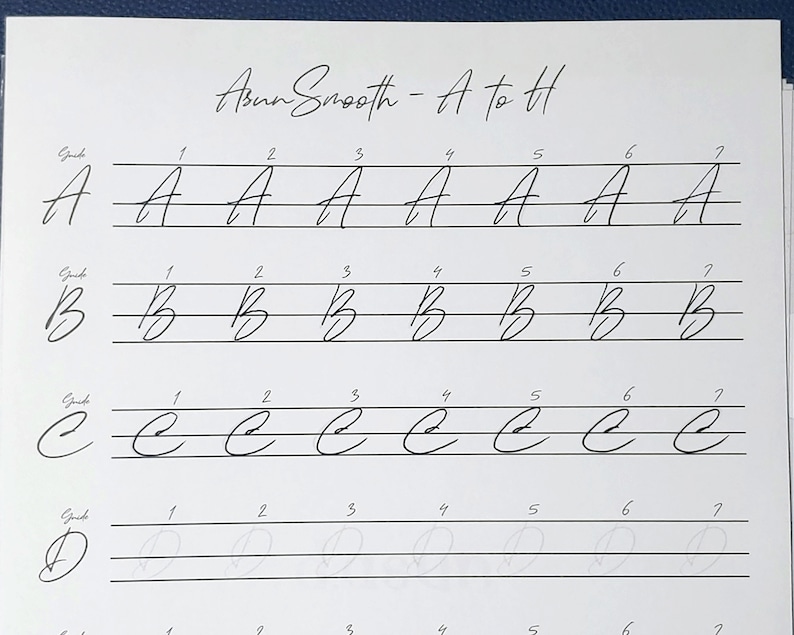 AsunSmooth - A to H
Guide 1 2 3 4 5 6 7
A A A A A A A A
Guide 1 2 3 4 5 6 7
B B B B B B B B
Guide 1 2 3 4 5 6 7
C C C C C C C C
Guide 1 2 3 4 5 6 7
D D D D D D D D
Guide 1 2 3 4 5 6 7